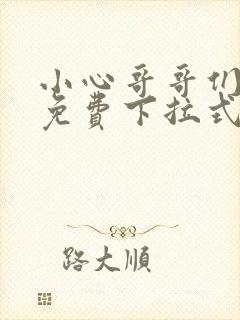 小心哥哥们
免费下拉式
路大順